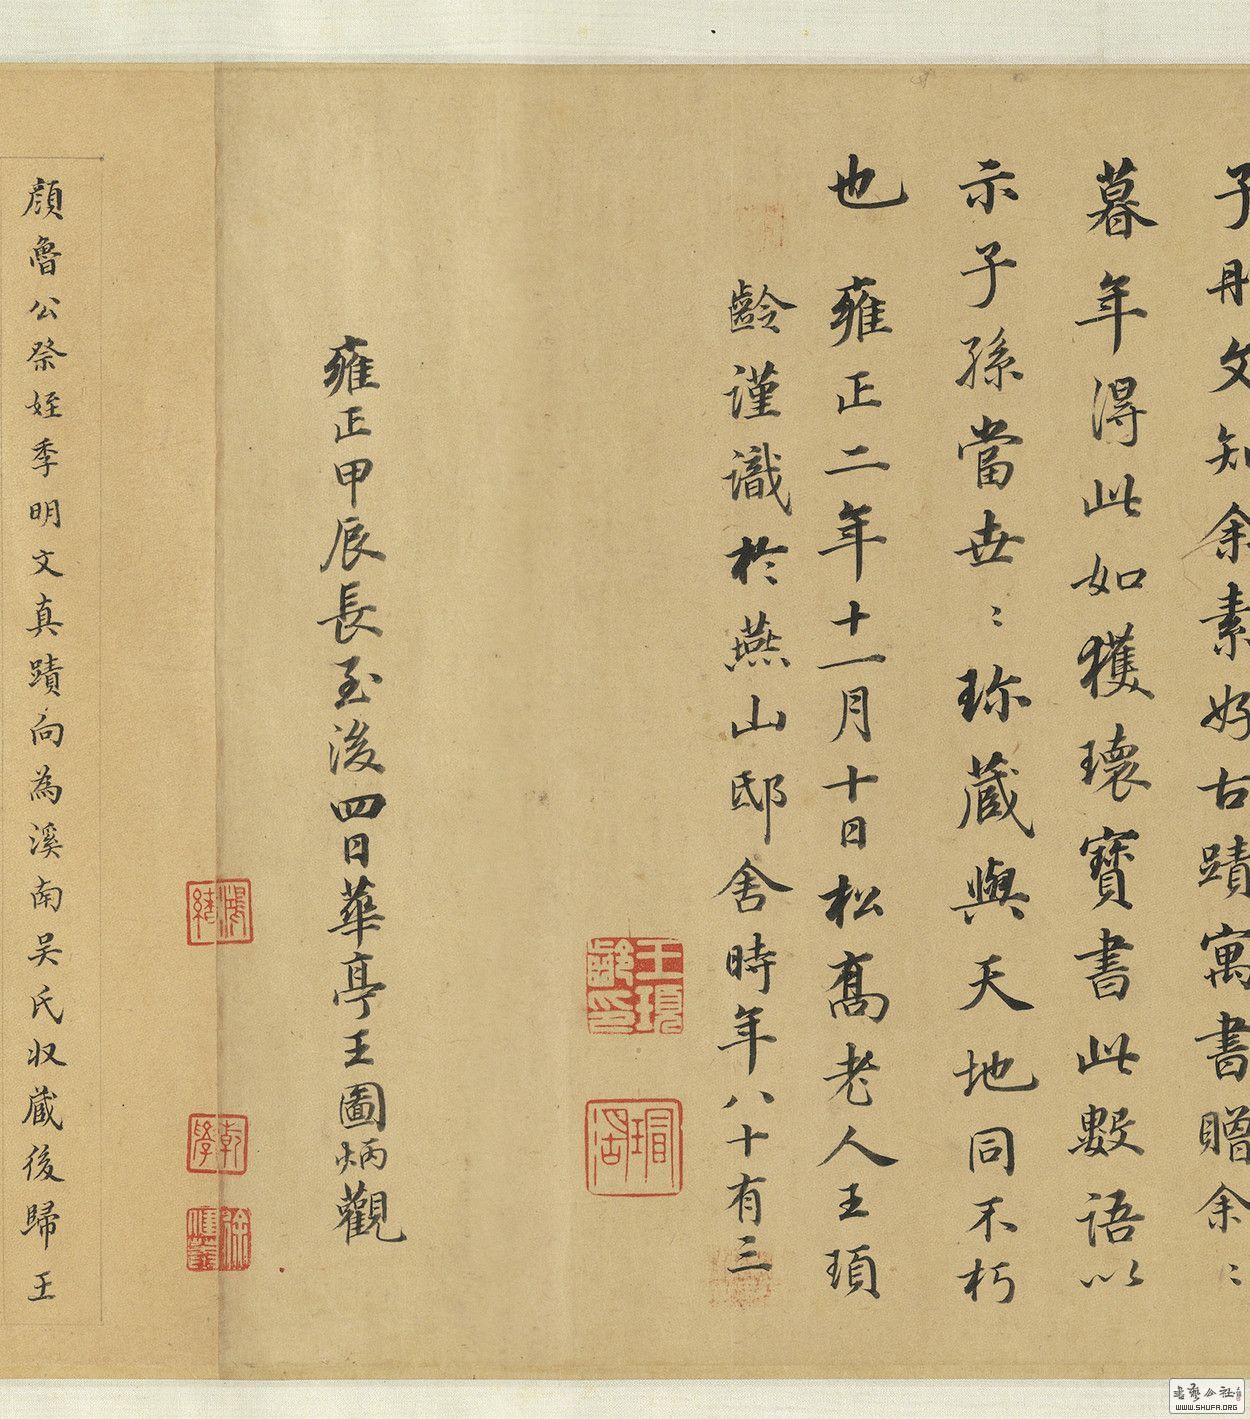 子丹文知余素好古蹟寓書贈余〻
暮年得此如獲瓌寶書此數語以
示子孫當世〻珎蔵與天地同不朽
也 雍正二年十一月十日松喬老人王頊
齡謹識於燕山邸舍時年八十有三
王頊齡印
瑁湖
雍正甲辰長至後四日華亭王圖炳觀
鴻緒
乾學
顔魯公祭姪季明文真蹟向為溪南吴氏収蔵後歸王
書藝公社
WWW.SHUFA.ORG